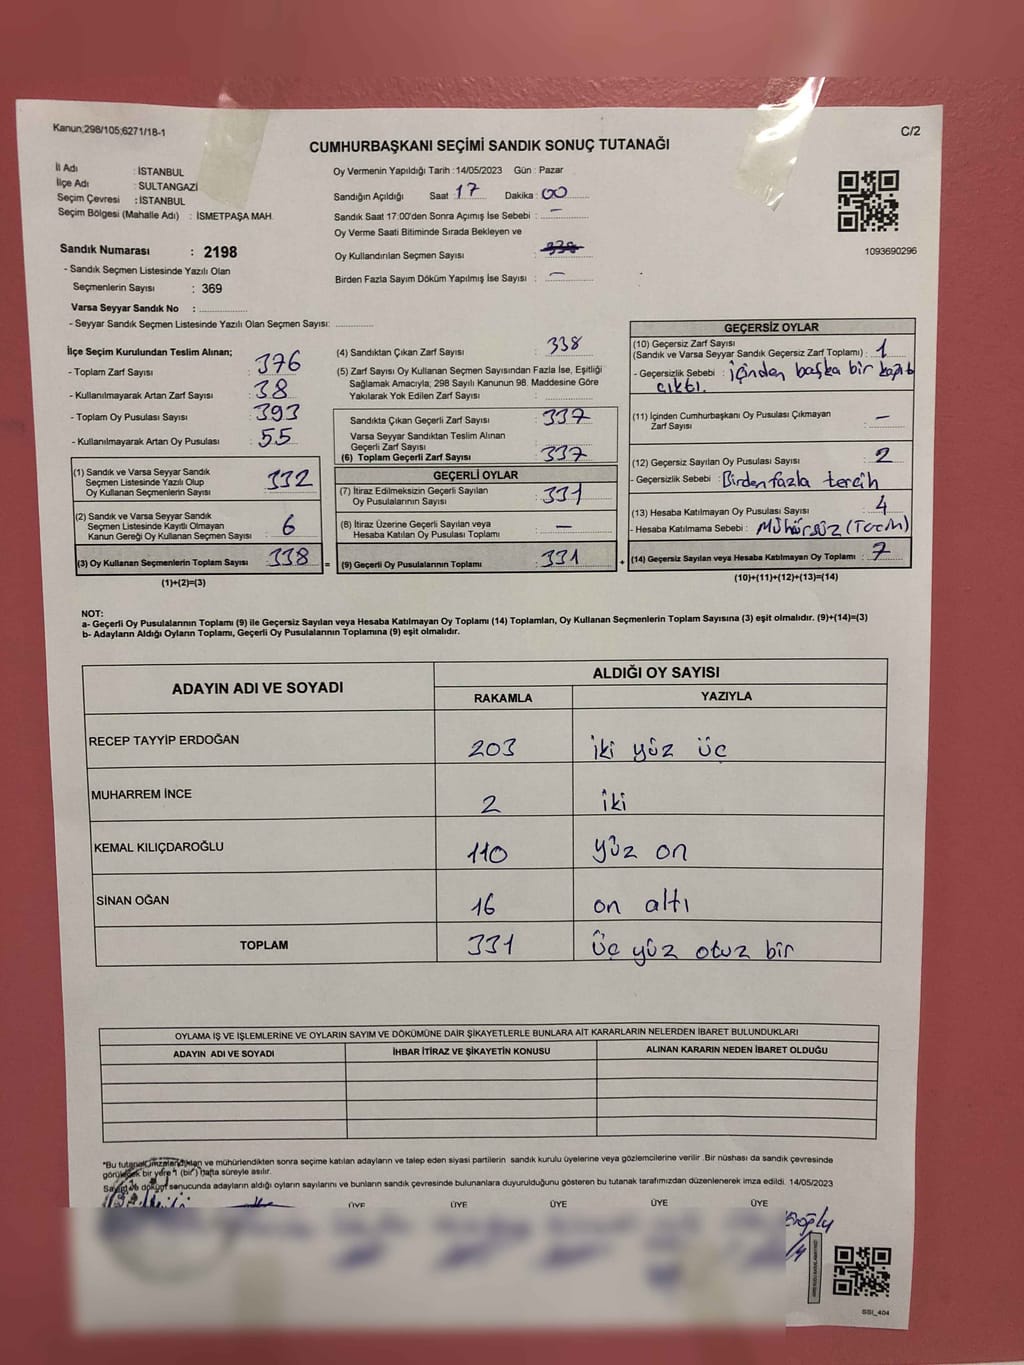 Kanun;298/105;6271/18-1
C/2
CUMHURBAŞKANI SEÇİMİ SANDIK SONUÇ TUTANAĞI
İl Adı : İSTANBUL
İlçe Adı : SULTANGAZİ
Seçim Çevresi : İSTANBUL
Seçim Bölgesi (Mahalle Adı) : İSMETPAŞA MAH.
Sandık Numarası : 2198
- Sandık Seçmen Listesinde Yazılı Olan
Seçmenlerin Sayısı : 369
Varsa Seyyar Sandık No :
- Seyyar Sandık Seçmen Listesinde Yazılı Olan Seçmen Sayısı:
Oy Vermenin Yapıldığı Tarih : 14/05/2023 Gün : Pazar
Sandığın Açıldığı Saat 17 Dakika : 00
Sandık Saat 17:00'den Sonra Açımış İse Sebebi : —
Oy Verme Saati Bitiminde Sırada Bekleyen ve
Oy Kullandırılan Seçmen Sayısı :
Birden Fazla Sayım Döküm Yapılmış İse Sayısı : —
1093690296
İlçe Seçim Kurulundan Teslim Alınan;
- Toplam Zarf Sayısı : 376
- Kullanılmayarak Artan Zarf Sayısı : 38
- Toplam Oy Pusulası Sayısı : 393
- Kullanılmayarak Artan Oy Pusulası : 55
(1) Sandık ve Varsa Seyyar Sandık
Seçmen Listesinde Yazılı Olup
Oy Kullanan Seçmenlerin Sayısı : 332
(2) Sandık ve Varsa Seyyar Sandık
Seçmen Listesinde Kayıtlı Olmayan
Kanun Gereği Oy Kullanan Seçmen Sayısı : 6
(3) Oy Kullanan Seçmenlerin Toplam Sayısı : 338 =
(1)+(2)=(3)
(4) Sandıktan Çıkan Zarf Sayısı : 338
(5) Zarf Sayısı Oy Kullanan Seçmen Sayısından Fazla İse, Eşitliği
Sağlamak Amacıyla; 298 Sayılı Kanunun 98. Maddesine Göre
Yakılarak Yok Edilen Zarf Sayısı :
Sandıkta Çıkan Geçerli Zarf Sayısı : 337
Varsa Seyyar Sandıktan Teslim Alınan
Geçerli Zarf Sayısı :
(6) Toplam Geçerli Zarf Sayısı : 337
GEÇERLİ OYLAR
(7) İtiraz Edilmeksizin Geçerli Sayılan
Oy Pusulalarının Sayısı : 331
(8) İtiraz Üzerine Geçerli Sayılan veya
Hesaba Katılan Oy Pusulaları Toplamı : —
(9) Geçerli Oy Pusulalarının Toplamı : 331 +
GEÇERSİZ OYLAR
(10) Geçersiz Zarf Sayısı
(Sandık ve Varsa Seyyar Sandık Geçersiz Zarf Toplamı) : 1
- Geçersizlik Sebebi : İçinden başka bir kağıt
çıktı.
(11) İçinden Cumhurbaşkanı Oy Pusulası Çıkmayan
Zarf Sayısı : —
(12) Geçersiz Sayılan Oy Pusulası Sayısı : 2
- Geçersizlik Sebebi : Birden fazla tercih
(13) Hesaba Katılmayan Oy Pusulası Sayısı : 4
- Hesaba Katılmama Sebebi : Mühürsüz
(14) Geçersiz Sayılan veya Hesaba Katılmayan Oy Toplamı : 7
(10)+(11)+(12)+(13)=(14)
NOT:
a- Geçerli Oy Pusulalarının Toplamı (9) ile Geçersiz Sayılan veya Hesaba Katılmayan Oy Toplamı (14) Toplamları, Oy Kullanan Seçmenlerin Toplam Sayısına (3) eşit olmalıdır. (9)+(14)=(3)
b- Adayların Aldığı Oyların Toplamı, Geçerli Oy Pusulalarının Toplamına (9) eşit olmalıdır.
ADAYIN ADI VE SOYADI ALDIĞI OY SAYISI
RAKAMLA YAZIYLA
RECEP TAYYİP ERDOĞAN 203 iki yüz üç
MUHARREM İNCE 2 iki
KEMAL KILIÇDAROĞLU 110 yüz on
SİNAN OĞAN 16 on altı
TOPLAM 331 üç yüz otuz bir
OYLAMA İŞ VE İŞLEMLERİNE VE OYLARIN SAYIM VE DÖKÜMÜNE DAİR ŞİKAYETLERLE BUNLARA AİT KARARLARIN NELERDEN İBARET BULUNDUKLARI
ADAYIN ADI VE SOYADI İHBAR İTİRAZ VE ŞİKAYETİN KONUSU ALINAN KARARIN NEDEN İBARET OLDUĞU
*Bu tutanak imzalandıktan ve mühürlendikten sonra seçime katılan adayların ve talep eden siyasi partilerin sandık kurulu üyelerine veya gözlemcilerine verilir .Bir nüshası da sandık çevresinde
görülecek bir yere 1 (bir) hafta süreyle asılır.
Sayım ve döküm sonucunda adayların aldığı oyların sayılarını ve bunların sandık çevresinde bulunanlara duyurulduğunu gösteren bu tutanak tarafımızdan düzenlenerek imza edildi. 14/05/2023
ÜYE ÜYE ÜYE ÜYE ÜYE
SSI_404